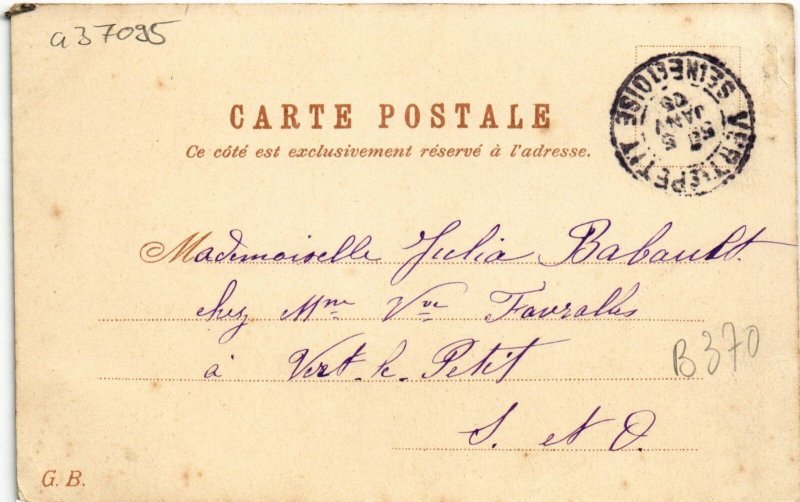 a37095
CARTE POSTALE
Ce côté est exclusivement réservé à l'adresse.
VERT LE PETIT
SEINE ET OISE
5
JANV
05
Mademoiselle Julia Babault.
chez Mme Vve
à Vert-le-Petit
S. et O.
B370
G. B.